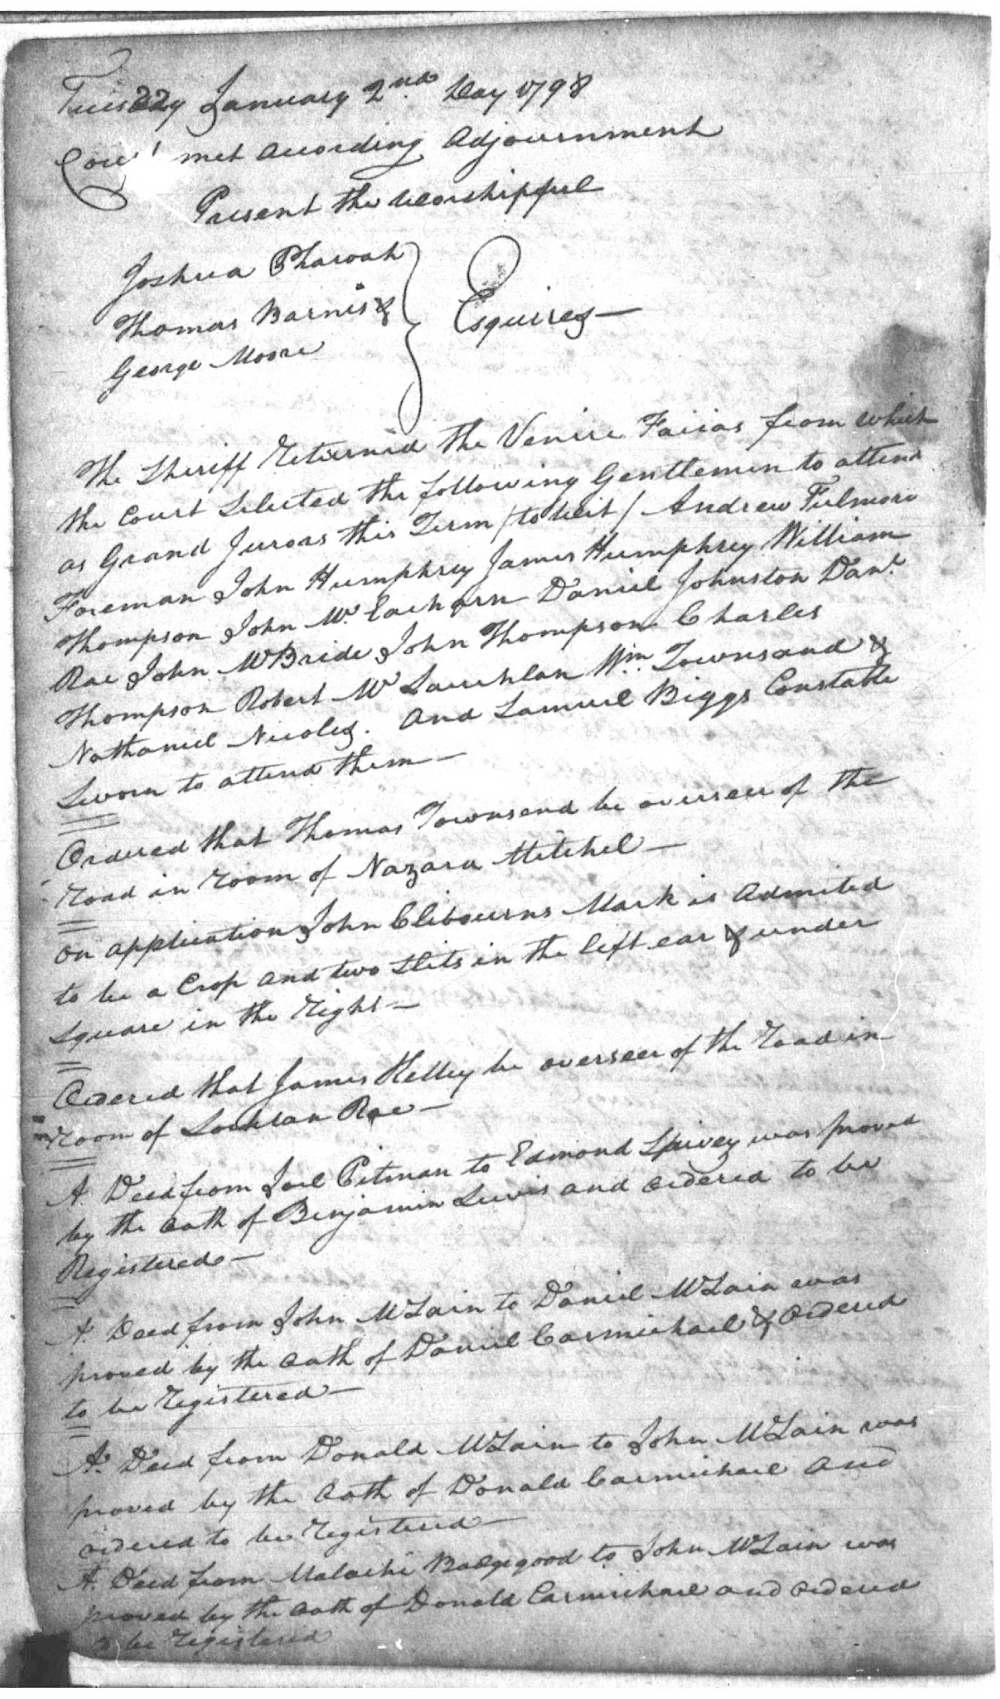 Tuesday January 2nd Day 1798
Court met according Adjournment
Present the Worshipful
Joshua Pharoah
Thomas Barnis &
George Moore
Esquires —
The Sheriff Returned the Venire Facias from which
the Court Selected the following Gentlemen to attend
as Grand Jurors this Term / to wit / Andrew Fulmore
Foreman John Humphrey James Humphrey William
Thompson John Mc Eachern Daniel Johnston Danl.
Rae John McBride John Thompson Charles
Thompson Robert Mc Lauchlan Wm. Townsand &
Nathaniel Nicoles. And Samuel Biggs Constable
Sworn to attend them —
Ordered that Thomas Townsend be overseer of the
Road in room of Nazara Mitchel —
On application John Clibourns Mark is Admited
to be a Crop and two Slits in the left ear & under
Square in the Right —
Ordered that James Kelley be overseer of the road in
room of Locklan Rae —
A Deed from Joel Pitman to Edmond Spivey was proved
by the oath of Benjamin Lewis and ordered to be
Registered —
A Deed from John McLain to Daniel McLain was
proved by the oath of Daniel Carmichael & Ordered
to be registered —
A Deed from Donald McLain to John McLain was
proved by the Oath of Donald Carmichael And
ordered to be registered —
A Deed from Malachi Badgegood to John McLain was
proved by the oath of Donald Carmichael and ordered
to be registered